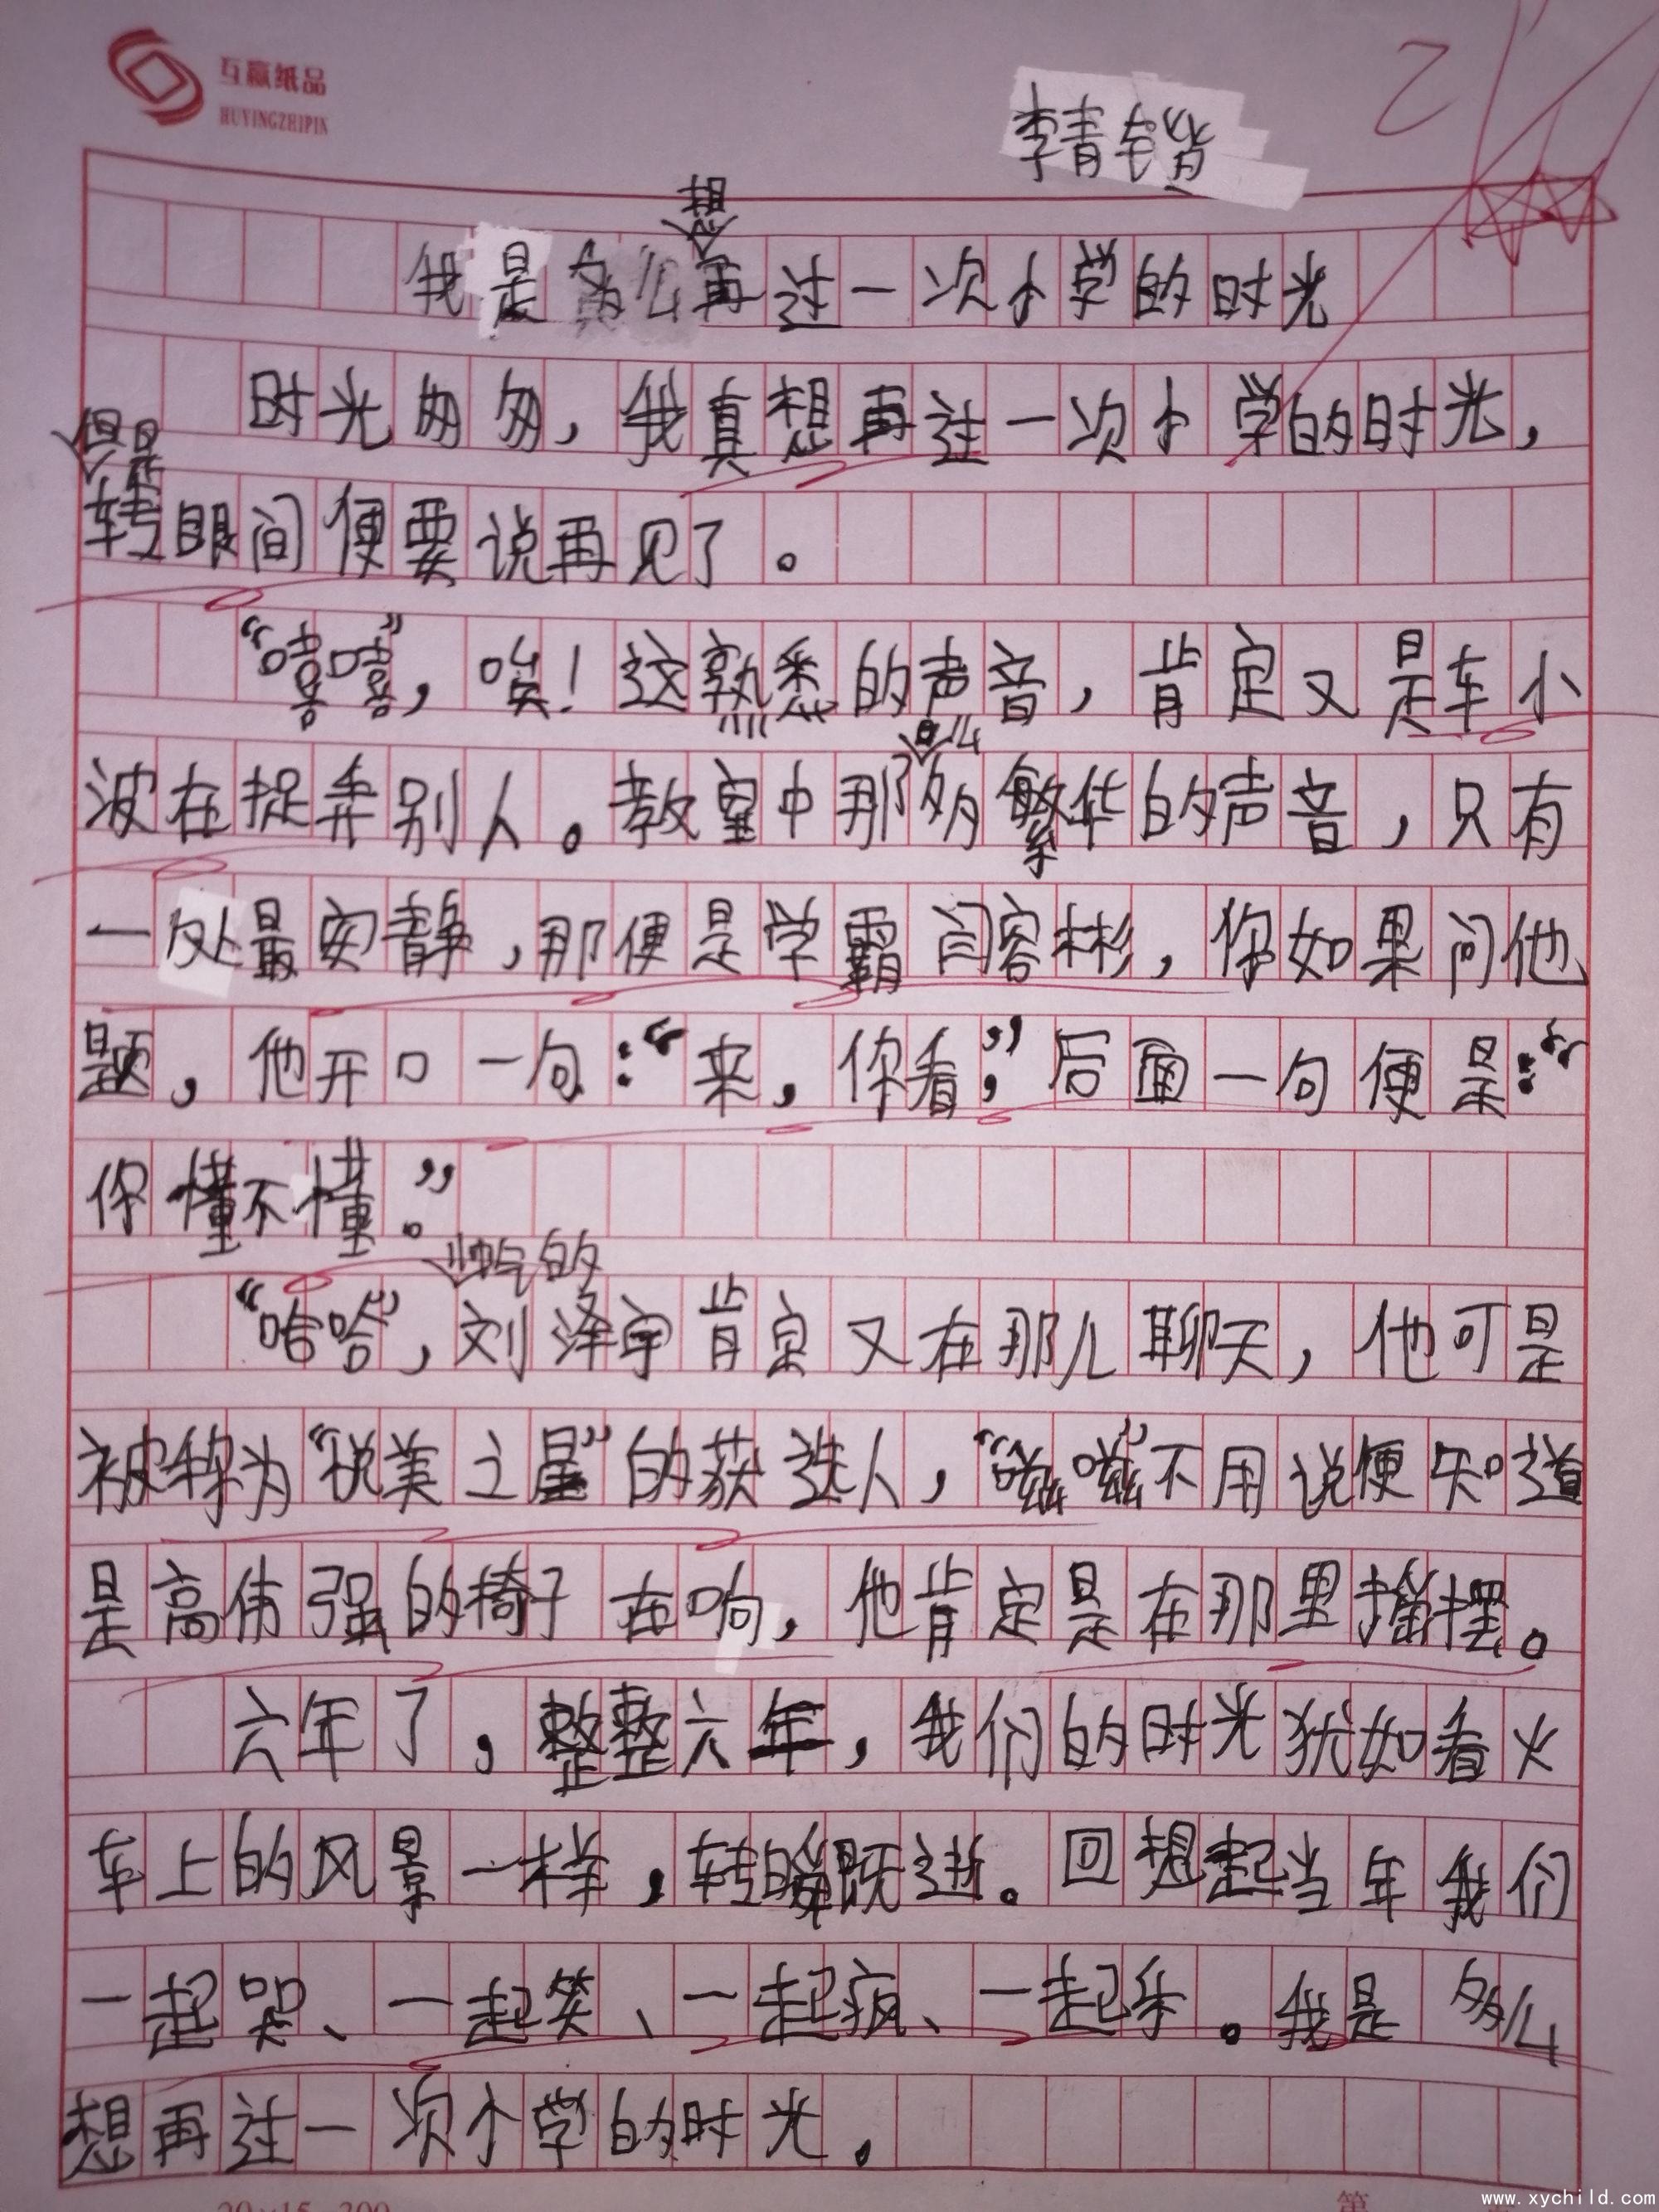 互赢纸品
HUYINGZHIPIN
李青锴
想
我是多么再过一次小学的时光
时光匆匆，我真想再过一次小学的时光，
但是
转眼间便要说再见了。
“嘻嘻”，唉！这熟悉的声音，肯定又是车小
么
波在捉弄别人。教室中那多繁华的声音，只有
一处最安静，那便是学霸闫容彬，你如果问他
题，他开口一句：“来，你看”，后面一句便是：“
你懂不懂。”
帅气的
“哈哈”，刘泽宇肯定又在那儿聊天，他可是
被称为“悦美之星”的获选人，“嗞嗞”不用说便知道
是高伟强的椅子在响，他肯定是在那里摇摆。
六年了，整整六年，我们的时光犹如看火
车上的风景一样，转瞬既逝。回想起当年我们
一起哭、一起笑、一起疯、一起乐。我是多么
想再过一次小学的时光。
20×15=300
第
www.xychild.com